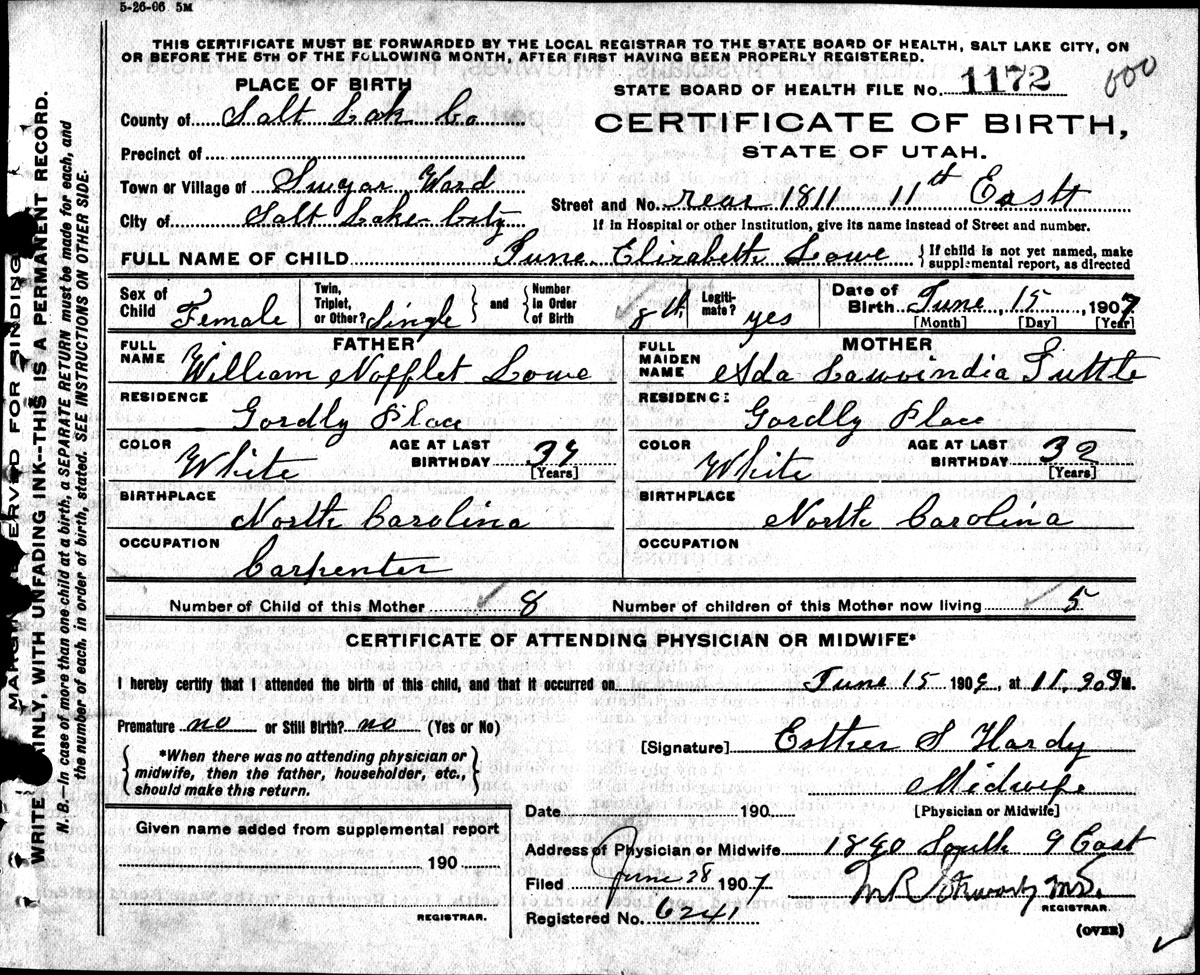 5-26-06 5M
THIS CERTIFICATE MUST BE FORWARDED BY THE LOCAL REGISTRAR TO THE STATE BOARD OF HEALTH, SALT LAKE CITY, ON
OR BEFORE THE 5TH OF THE FOLLOWING MONTH, AFTER FIRST HAVING BEEN PROPERLY REGISTERED.
PLACE OF BIRTH
STATE BOARD OF HEALTH FILE No. 1172
000
County of Salt Lak Co
CERTIFICATE OF BIRTH,
STATE OF UTAH.
Precinct of
Town or Village of Sugar Ward
Street and No. rear 1811 11th East
City of Salt Lake City
If in Hospital or other Institution, give its name instead of Street and number.
FULL NAME OF CHILD June Elizabeth Lowe
{ If child is not yet named, make supplemental report, as directed
Sex of Child Female
Twin, Triplet, or Other? Single } and { Number in Order of Birth 8th
Legitimate? yes
Date of Birth June 15, 1907
[Month] [Day] [Year]
FATHER
FULL NAME William Nofflet Lowe
RESIDENCE Gordly Place
COLOR White
AGE AT LAST BIRTHDAY
[Years]
BIRTHPLACE North Carolina
OCCUPATION Carpenter
MOTHER
FULL MAIDEN NAME Ada Tuttle
RESIDENCE Gordly Place
COLOR White
AGE AT LAST BIRTHDAY 32
[Years]
BIRTHPLACE North Carolina
OCCUPATION
Number of Child of this Mother 8
Number of children of this Mother now living 5
CERTIFICATE OF ATTENDING PHYSICIAN OR MIDWIFE*
I hereby certify that I attended the birth of this child, and that it occurred on June 15 190, at 11. M.
Premature no or Still Birth? no (Yes or No)
{ *When there was no attending physician or
midwife, then the father, householder, etc.,
should make this return. }
[Signature] Esther S Hardy
Midwife
[Physician or Midwife]
Date 190
Given name added from supplemental report
190
REGISTRAR.
Address of Physician or Midwife South 9 East
Filed June 28 1907
M.D.
REGISTRAR.
Registered No. 6241
(OVER)
MARGIN RESERVED FOR BINDING
WRITE PLAINLY, WITH UNFADING INK--THIS IS A PERMANENT RECORD.
N. B.—In case of more than one child at a birth, a SEPARATE RETURN must be made for each, and
the number of each, in order of birth, stated. SEE INSTRUCTIONS ON OTHER SIDE.